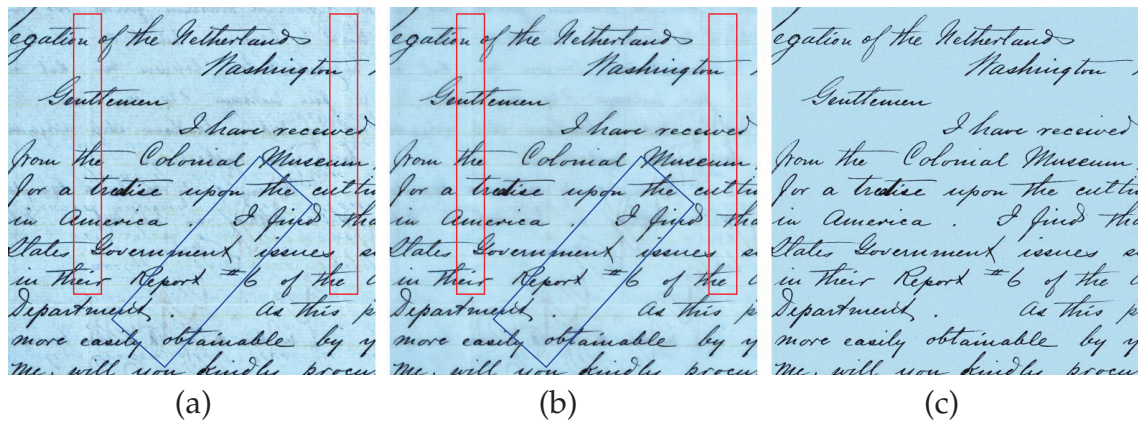 egation of the Netherlands
Washington
Gentlemen
I have received
from the Colonial Museum
for a treatise upon the cultu
in America. I find tha
States Government issues s
in their Report #6 of the
Department. As this p
more easily obtainable by y
me, will you kindly procu
egation of the Netherlands
Washington
Gentlemen
I have received
from the Colonial Museum
for a treatise upon the cultu
in America. I find tha
States Government issues s
in their Report #6 of the
Department. As this p
more easily obtainable by y
me, will you kindly procu
egation of the Netherlands
Washington
Gentlemen
I have received
from the Colonial Museum
for a treatise upon the cultu
in America. I find tha
States Government issues s
in their Report #6 of the
Department. As this p
more easily obtainable by y
me, will you kindly procu
(a) (b) (c)